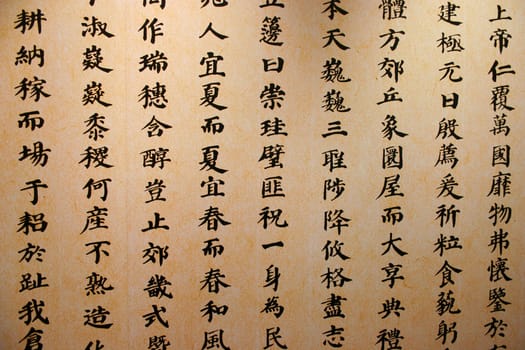 上帝仁覆萬國靡物弗懷鑒於
建極元日殷薦爰祈粒食藐躬
體方郊丘象圜屋而大享典禮
本天巍巍三聖陟降攸格盡志
籩曰崇珪璧匪祝一身為民
人宜夏而夏宜春而春和風
作瑞穗含醇豈止郊畿式暨
淑嶷嶷黍稷何產不熟造化
耕納稼而場于耜於趾我倉